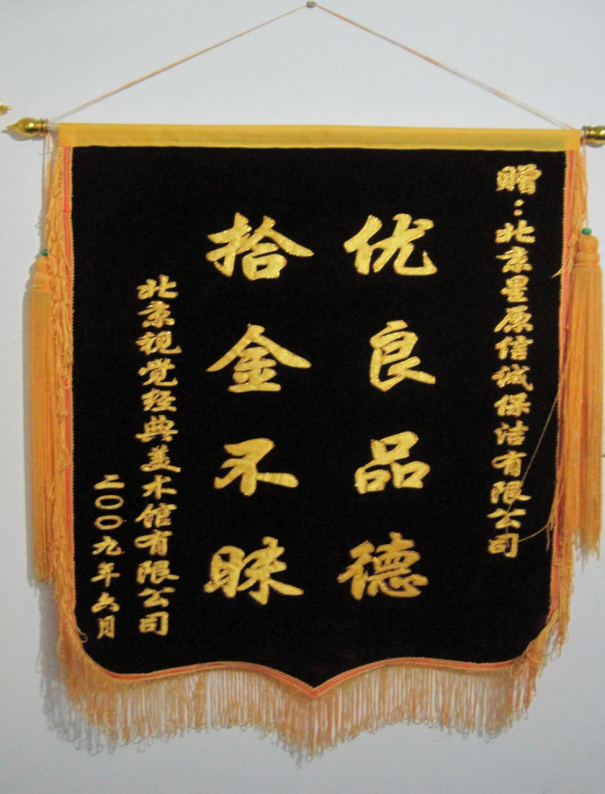 赠：北京星原信诚保洁有限公司
优良品德
拾金不昧
北京视觉经典美术馆有限公司
二〇〇九年六月